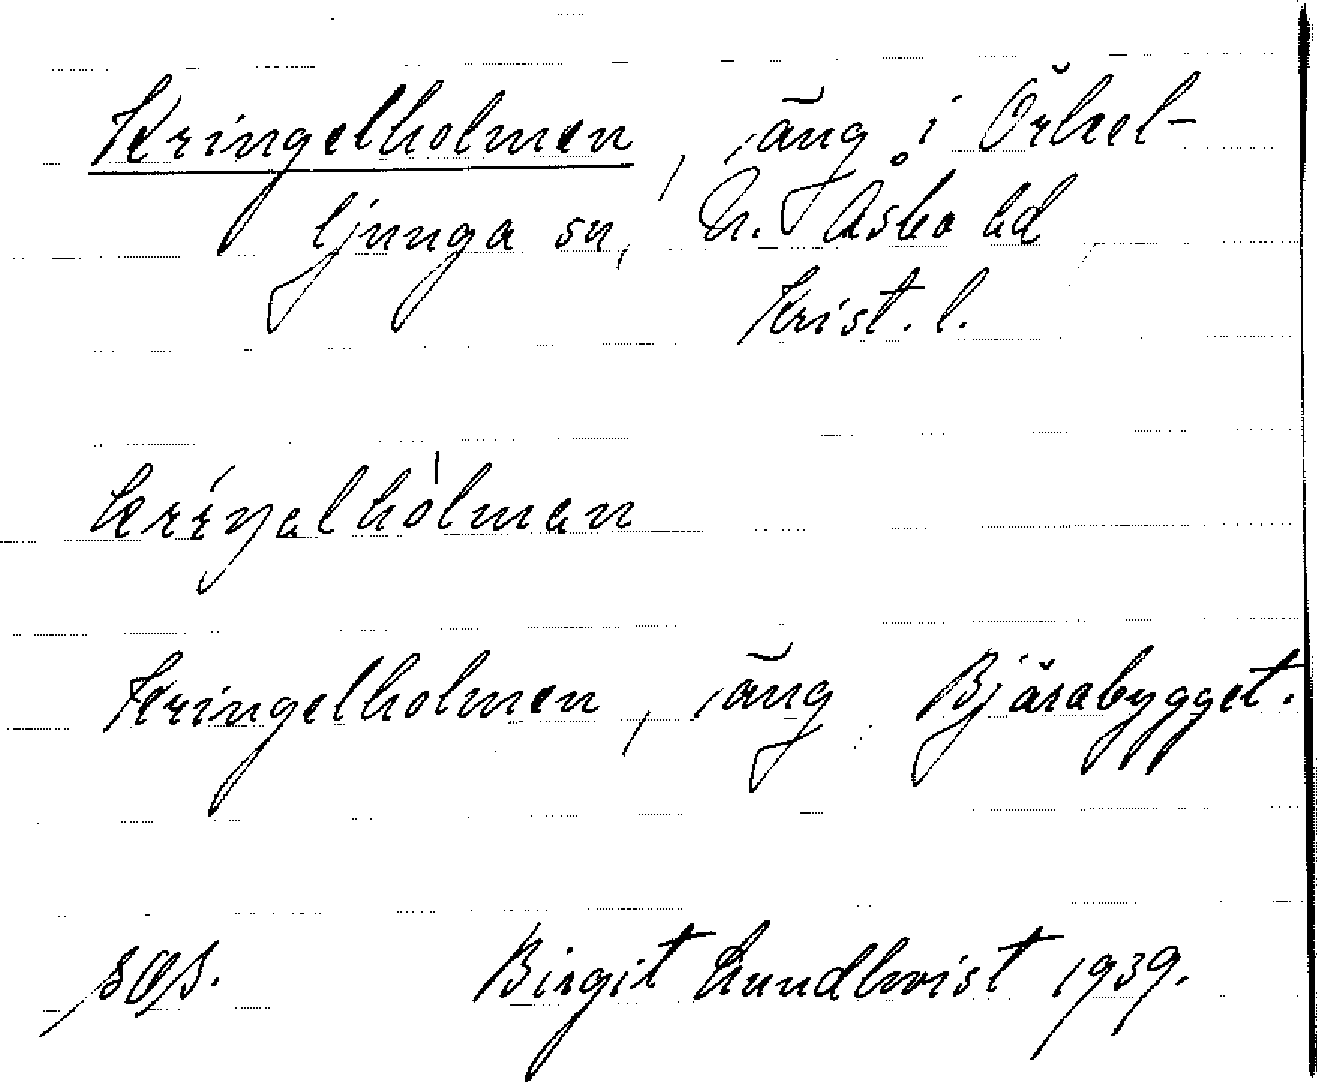 Kringelholmen, äng i Örkel-
ljunga sn, N. Åsbo hd
Krist. l.
Kringelholmen, äng Bjärabygget.
Birgit Lundkvist 1939.